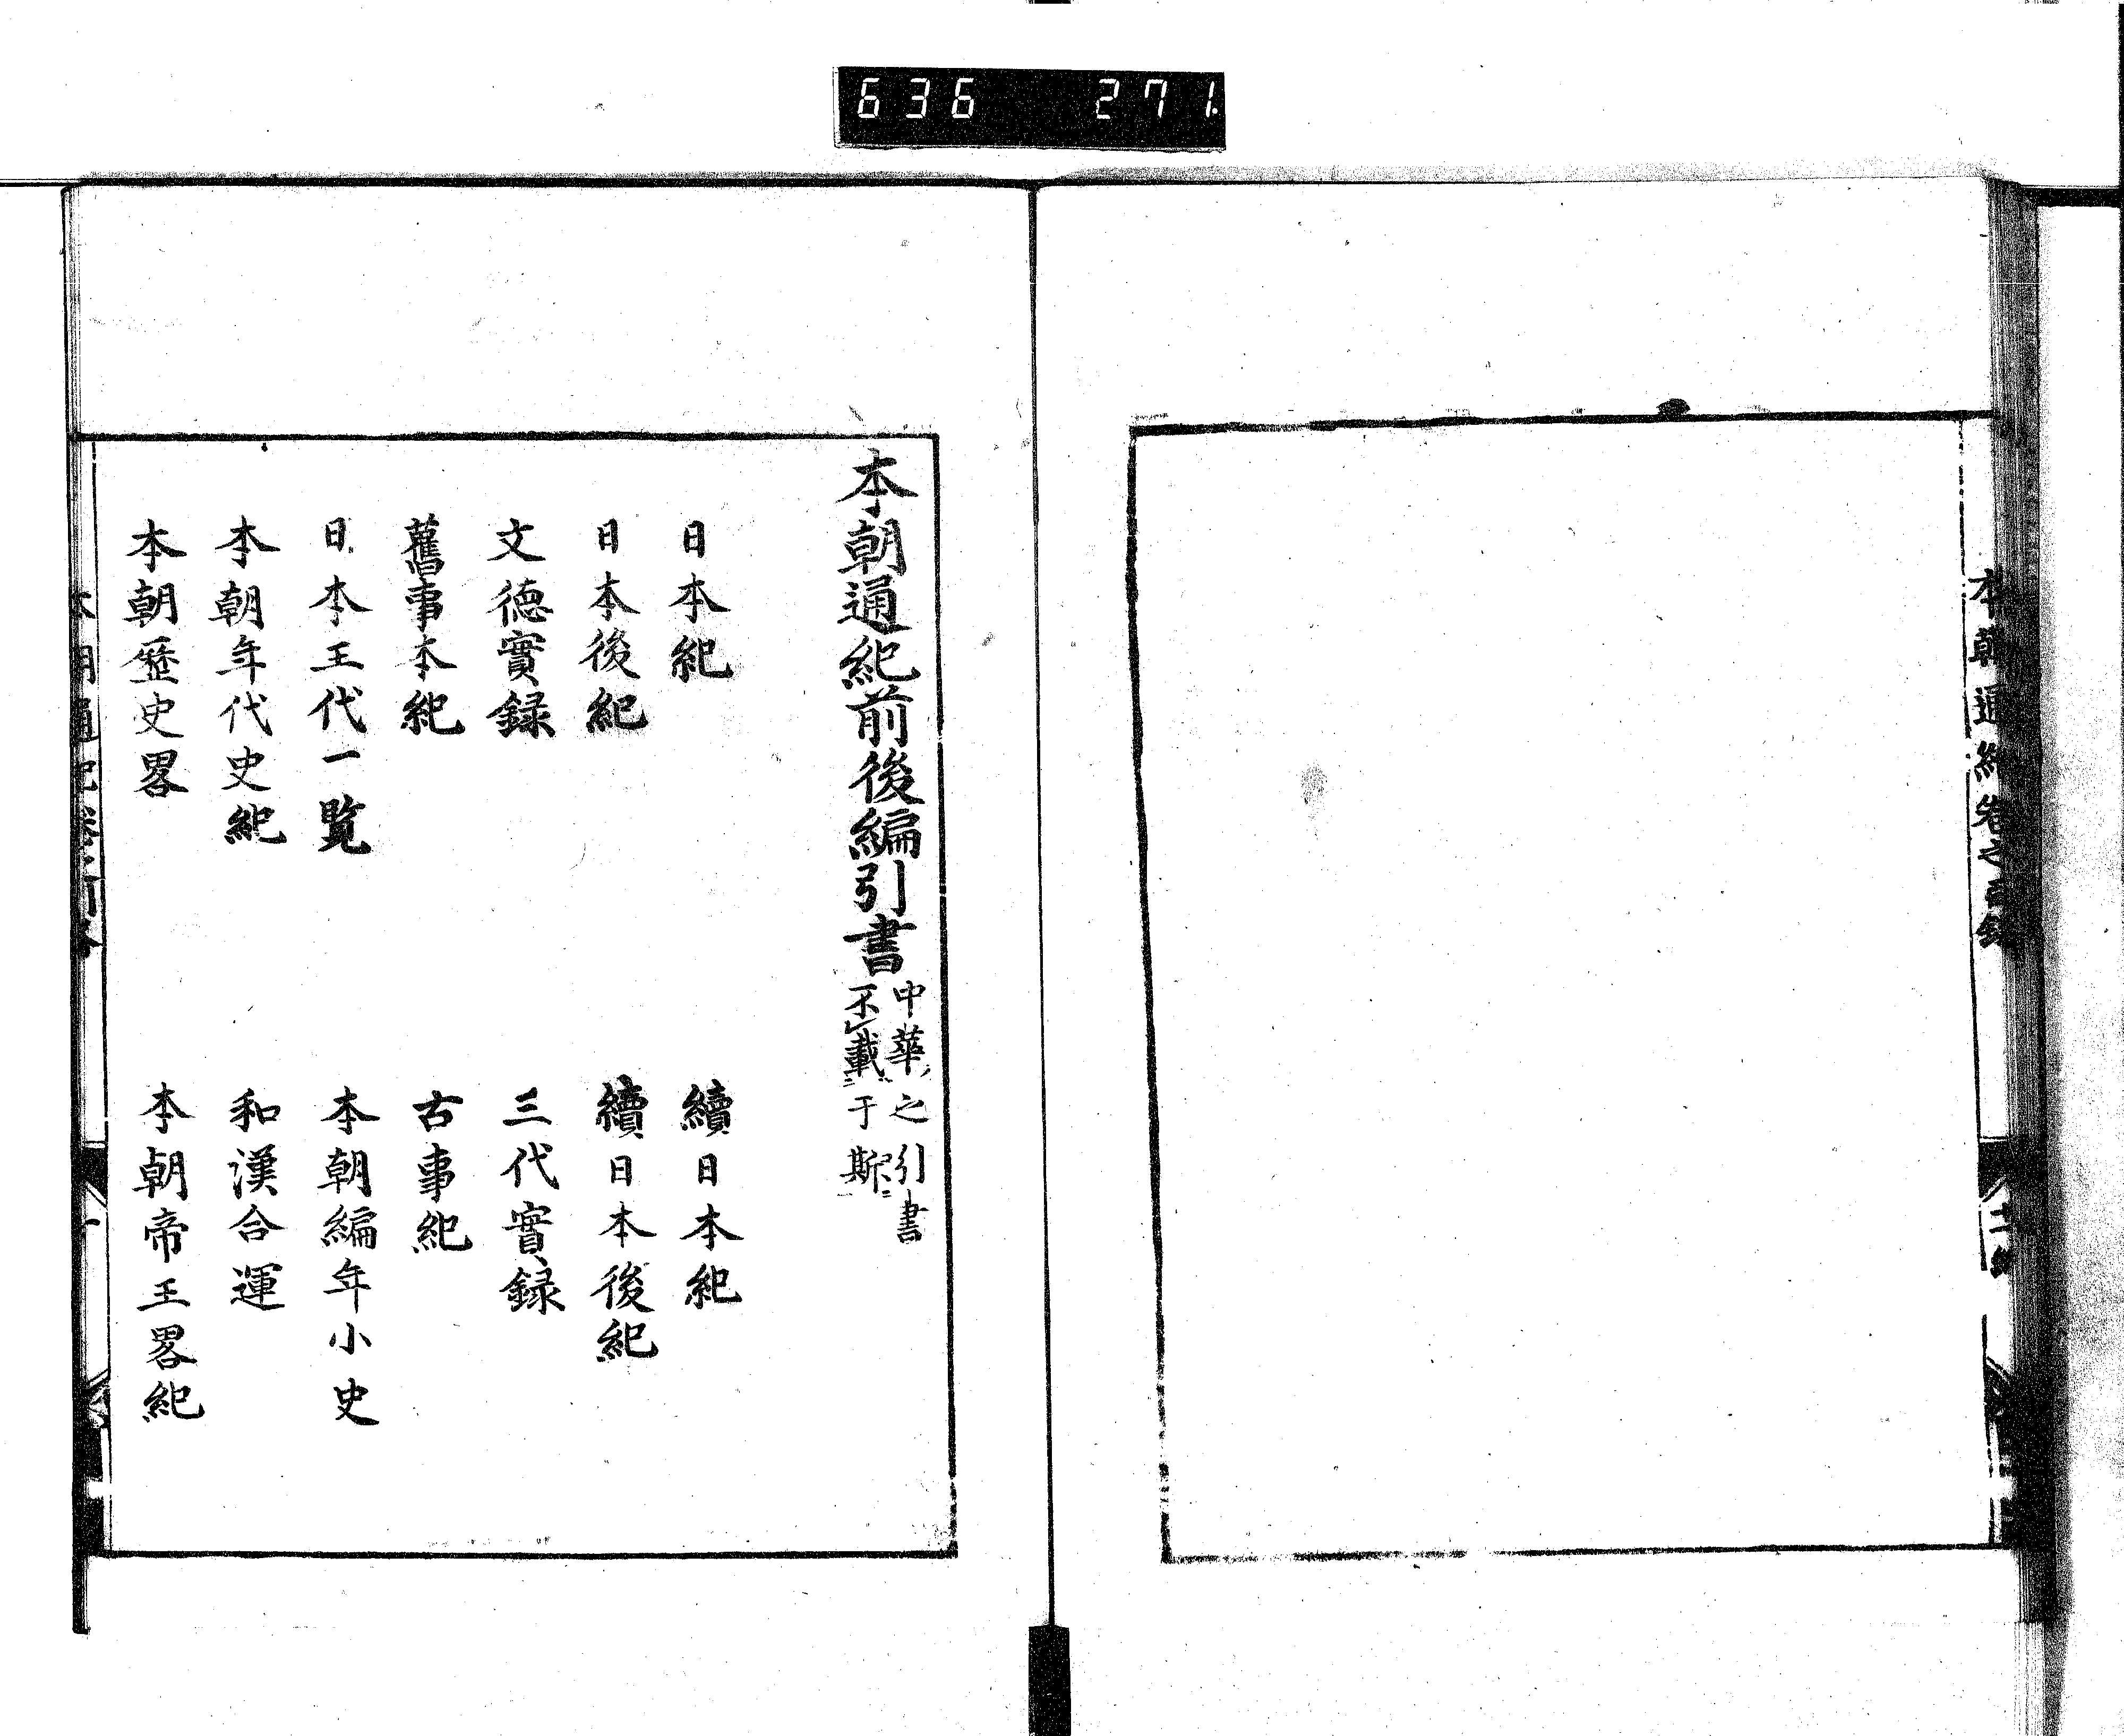 636 271
本朝通紀卷之目録
本朝通紀前後編引書
中華之引書
不載于斯
日本紀 續日本紀
日本後紀 續日本後紀
文德實録 三代實録
舊事本紀 古事紀
日本王代一覧 本朝編年小史
本朝年代史紀 和漢合運
本朝歷史畧 本朝帝王畧紀